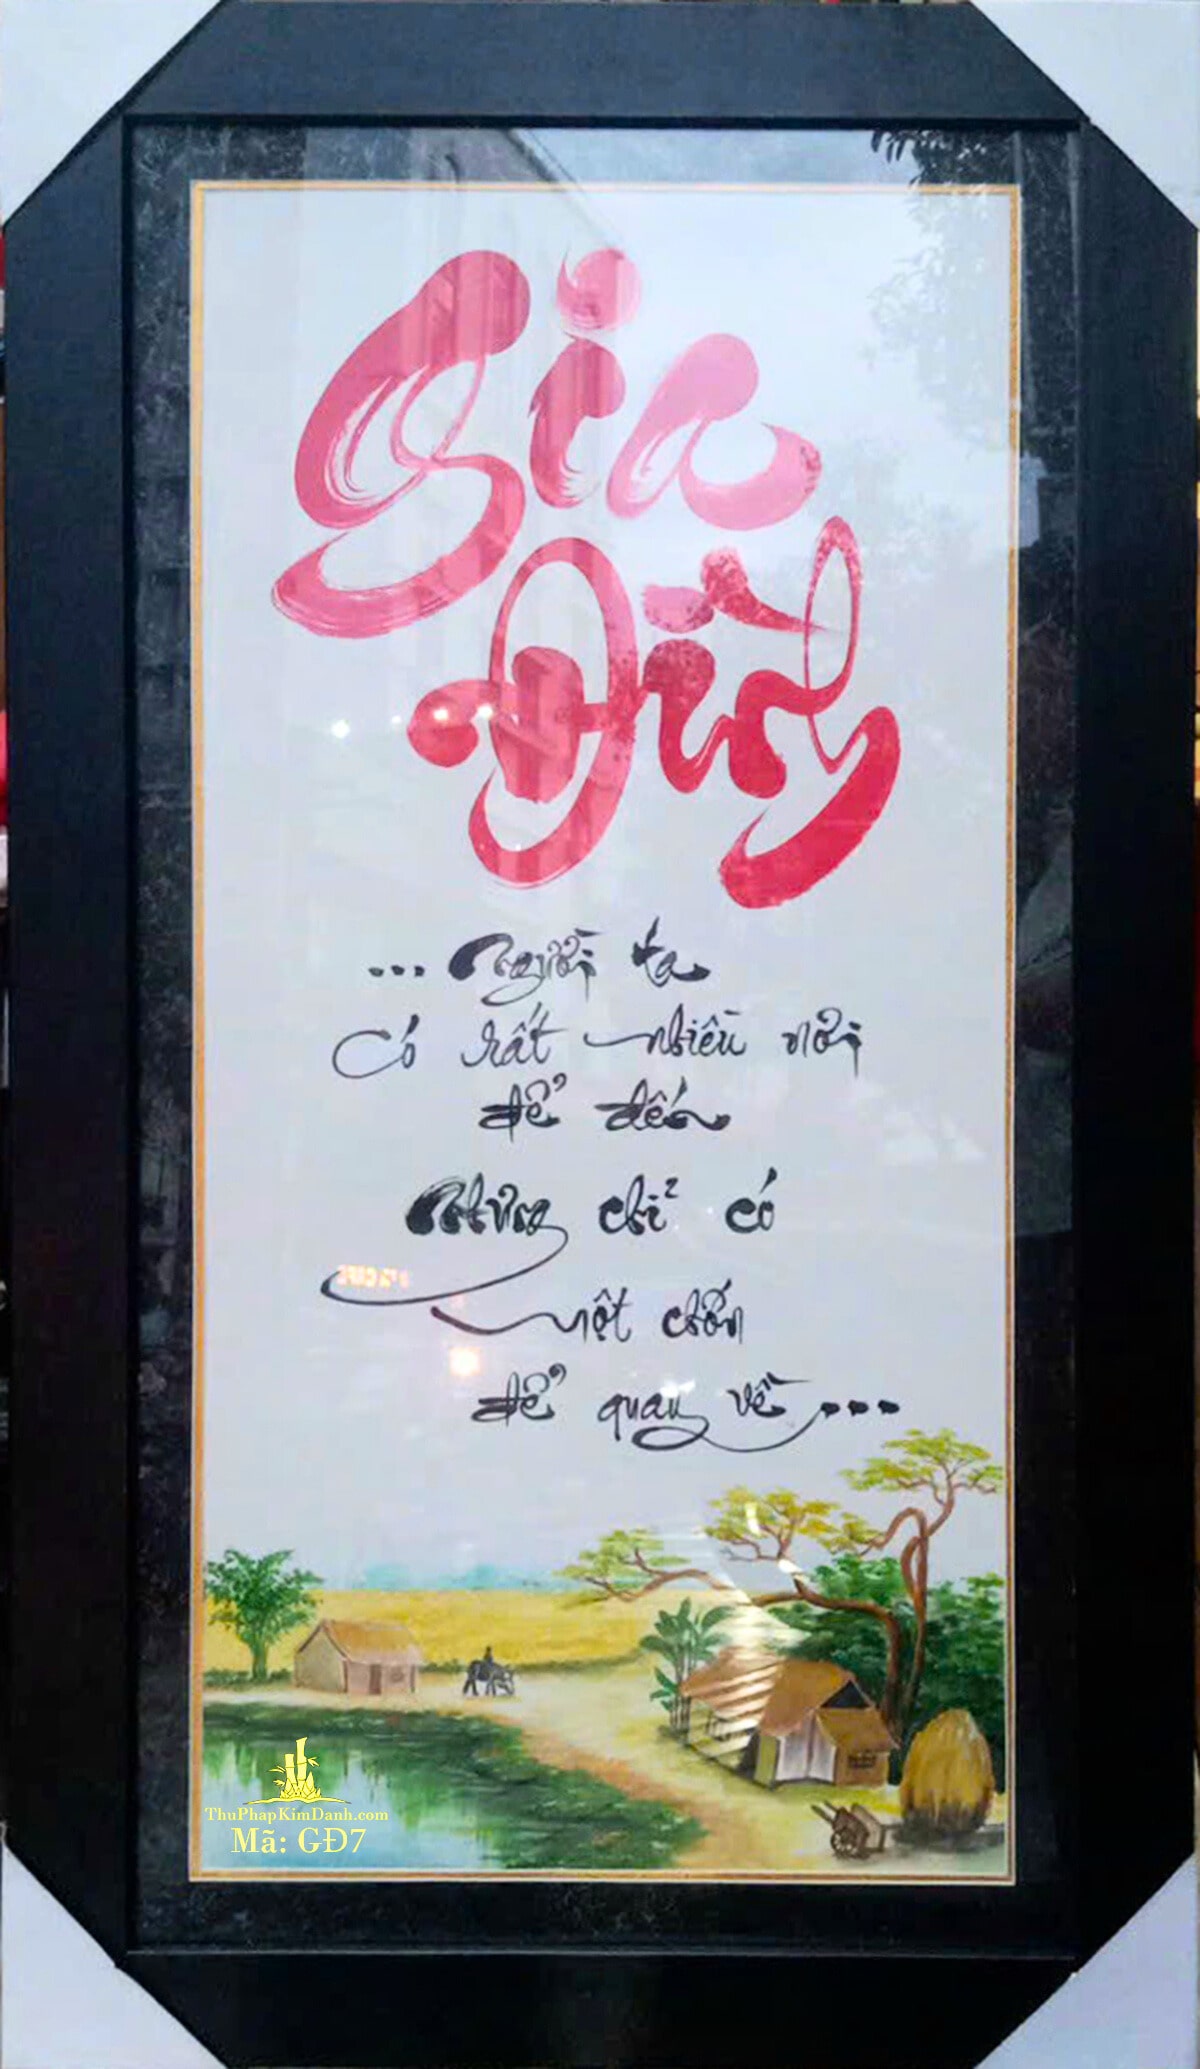 Gia
Đình
... Người ta
Có rất nhiều nơi
để đến
Nhưng chỉ có
một chốn
để quay về ...
ThuPhapKimDanh.com
Mã: GĐ7